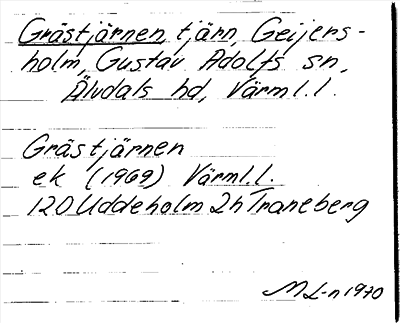 Grästjärnen, tjärn, Geijers-
holm, Gustav Adolfs sn,
Älvdals hd, Värml.l.
Grästjärnen
ek (1969) Värml.l.
120 Uddeholm 2h Traneberg
M L-n 1970